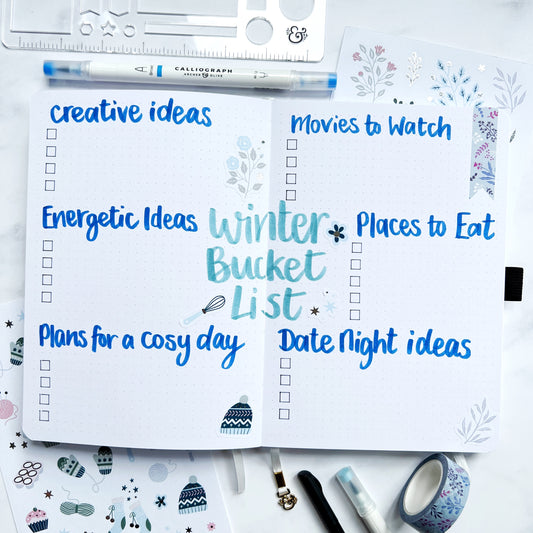 CALLIOGRAPH
ARCHER & OLIVE
&
creative ideas
Movies to Watch
Energetic Ideas
Winter
Bucket
List
Places to Eat
Plans for a cosy day
Date Night ideas